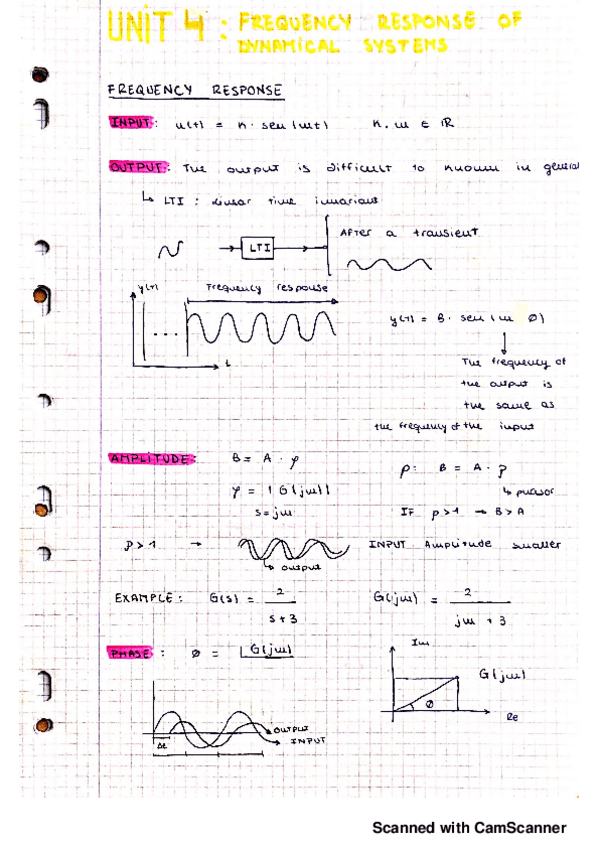 UNIT 4 : FREQUENCY RESPONSE OF
DYNAMICAL SYSTEMS
FREQUENCY RESPONSE
INPUT: u(t) = A · sen (ωt) A, ω ∈ ℝ
OUTPUT: The output is difficult to known in general
↳ LTI : linear time invariant
LTI
AFTER a transient
y(t)
Frequency response
t
y(t) = B · sen (ω ∅)
The frequency of
the output is
the same as
the frequency of the input
AMPLITUDE: B = A · ρ
ρ = |G(jω)|
s = jω
ρ: B = A · ρ
IF ρ>1 → B>A
ρ>1 →
output
INPUT Amplitude smaller
EXAMPLE: G(s) = 2 / s+3
G(jω) = 2 / jω + 3
PHASE: ∅ = G(jω)
Im
G(jω)
∅
Re
Δt
OUTPUT
INPUT
Scanned with CamScanner